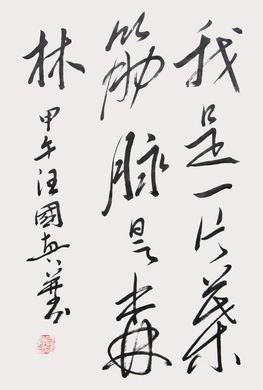 我是一片叶
筋脉是森
林
甲午汪國真并书